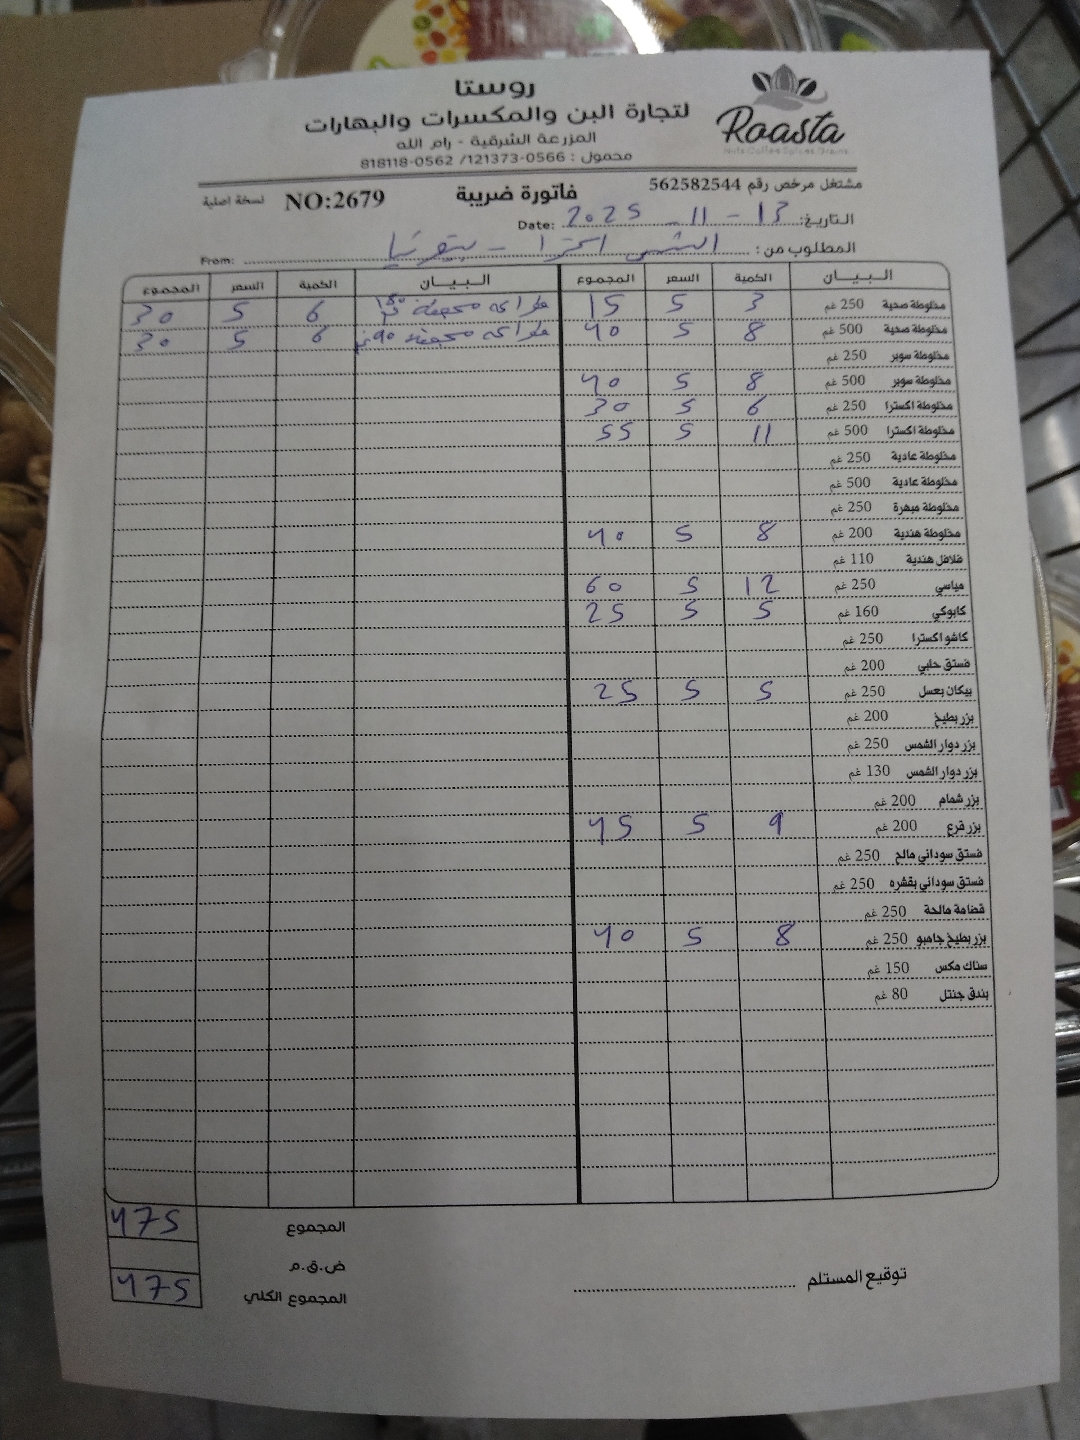 روستا
لتجارة البن والمكسرات والبهارات
المزرعة الشرقية - رام الله
محمول : 0566-121373/ 0562-818118
Roasta
Nuts Coffee Spices Grains
مشتغل مرخص رقم 562582544
فاتورة ضريبة
NO:2679
نسخة اصلية
التاريخ: 13 - 11 - 2025 Date:
المطلوب من: الشني اكسترا - بيتونيا From:
البيان الكمية السعر المجموع البيان الكمية السعر المجموع
مخلوطة صحية 250 غم 3 5 15 محفظة 6 5 30
مخلوطة صحية 500 غم 8 5 40 90غم 6 5 30
مخلوطة سوبر 250 غم
مخلوطة سوبر 500 غم 8 5 40
مخلوطة اكسترا 250 غم 6 5 30
مخلوطة اكسترا 500 غم 11 5 55
مخلوطة عادية 250 غم
مخلوطة عادية 500 غم
مخلوطة مبهرة 250 غم
مخلوطة هندية 200 غم 8 5 40
فلافل هندية 110 غم
مياسي 250 غم 12 5 60
كابوكي 160 غم 5 5 25
كاشو اكسترا 250 غم
فستق حلبي 200 غم
بيكان بعسل 250 غم 5 5 25
بزر بطيخ 200 غم
بزر دوار الشمس 250 غم
بزر دوار الشمس 130 غم
بزر شمام 200 غم
بزر قرع 200 غم 9 5 45
فستق سوداني مالح 250 غم
فستق سوداني بقشره 250 غم
قضامة مالحة 250 غم
بزر بطيخ جامبو 250 غم 8 5 40
سناك مكس 150 غم
بندق جنتل 80 غم
المجموع 475
ض.ق.م
المجموع الكلي 475
توقيع المستلم